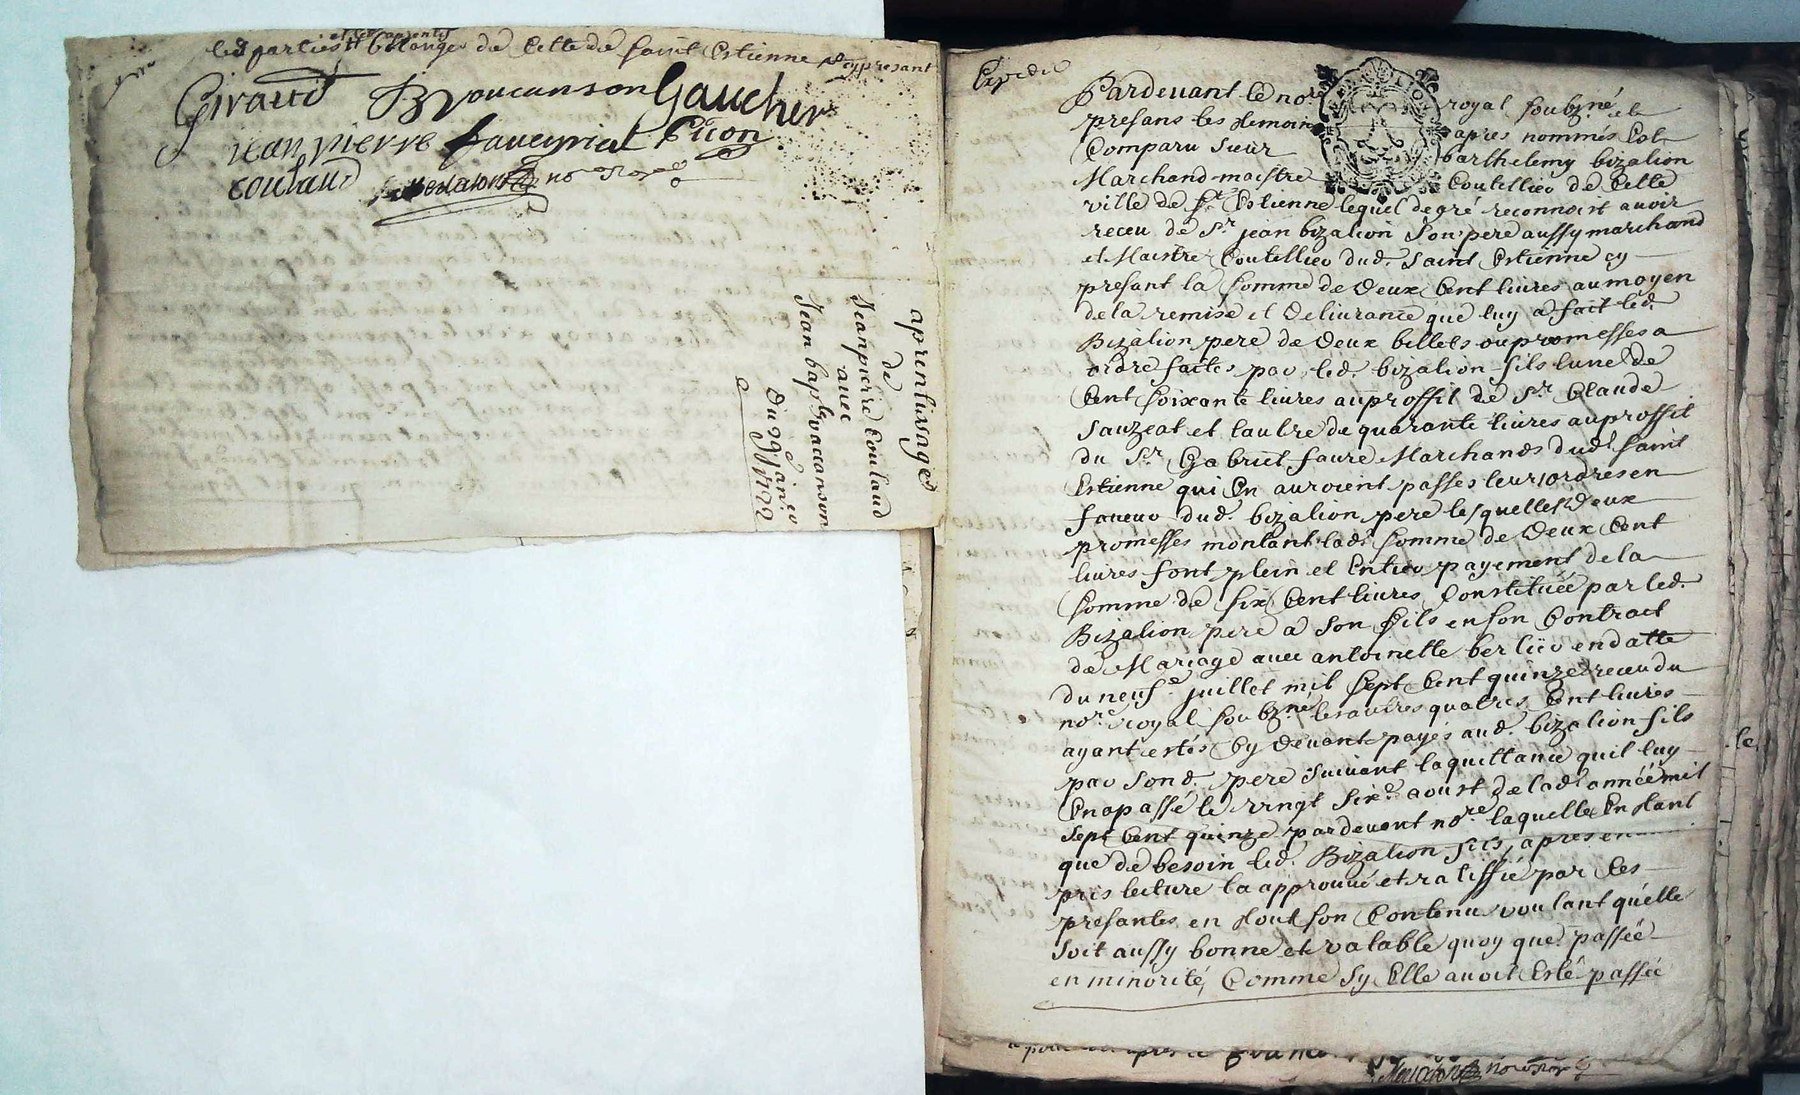 et led. aprentif
led parties et belanger de cette de Saint Estienne cy presant
Giraud Bvoucanson Gaucher
jean pierre faveyrial Picon
coulaud nore Royal
aprentissage
de
Jean pierre Coulaud
avec
Jean bapt. Vaccanson
Du 29 Janer
1722
Expedié
Pardevant le nore royal soubzné et
presans les temoins apres nommés Est
Comparu sieur barthelemy bizalion
Marchand maistre Coutellier de Cette
ville de St. Estienne lequel de gré reconnoist avoir
receu de Sr. jean bizalion son pere aussy marchand
et Maistre Coutellier dud. Saint Estienne cy
presant la somme de Deux Cent livres au moyen
de la remise et Delivrance que luy a fait led.
Bizalion pere de Deux billets ou promesses a
ordre faites par led. bizalion fils lune de
Cent soixante livres au proffit de Sr. Claude
Sauzeat et lautre de quarante livres au proffit
du Sr. Gabriel faure Marchands dud. Saint
Estienne qui En auroient passés leur ordres en
faveur dud. bizalion pere lesquelles Deux
promesses montant lad. somme de Deux Cent
livres font plein et Entier payement de la
somme de six Cent livres Constituée par led.
Bizalion pere a son fils en son Contract
de Mariage avec antoinette berlier en datte
du neufe juillet mil sept Cent quinze receu du
nore royal soubzné les autres quatres Cent livres
ayant estés Cy Devant payés aud. bizalion fils
par sond. pere suivant la quittance quil luy
En a passé le vingt sixe aoust de lad. année mil
sept Cent quinze pardevant nore laquelle En tant
que de besoin led. Bizalion fils, apres en
pris lecture la approuvé et ratiffié par Ces
presantes en tout son Contenu voulant quelle
soit aussy bonne et valable quoy que passée
en minorité, Comme sy Elle avoit Esté passée
le
apres